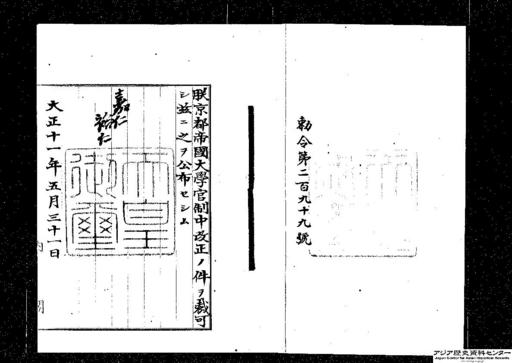 勅令第二百九十九號
朕京都帝國大學官制中改正ノ件ヲ裁可
シ玆ニ之ヲ公布セシム
嘉仁
裕仁
天皇御璽
大正十一年五月三十一日
内閣
アジア歴史資料センター
Japan Center for Asian Historical Records